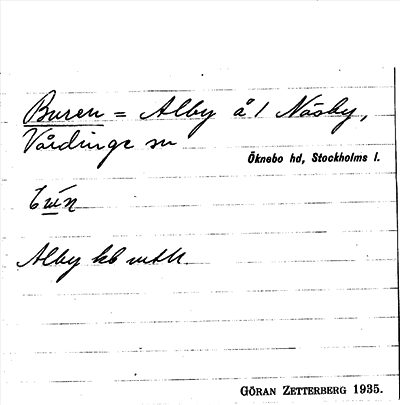 Buren = Alby å 1 Näsby,
Vårdinge sn
Öknebo hd, Stockholms l.
Alby kb
GÖRAN ZETTERBERG 1935.